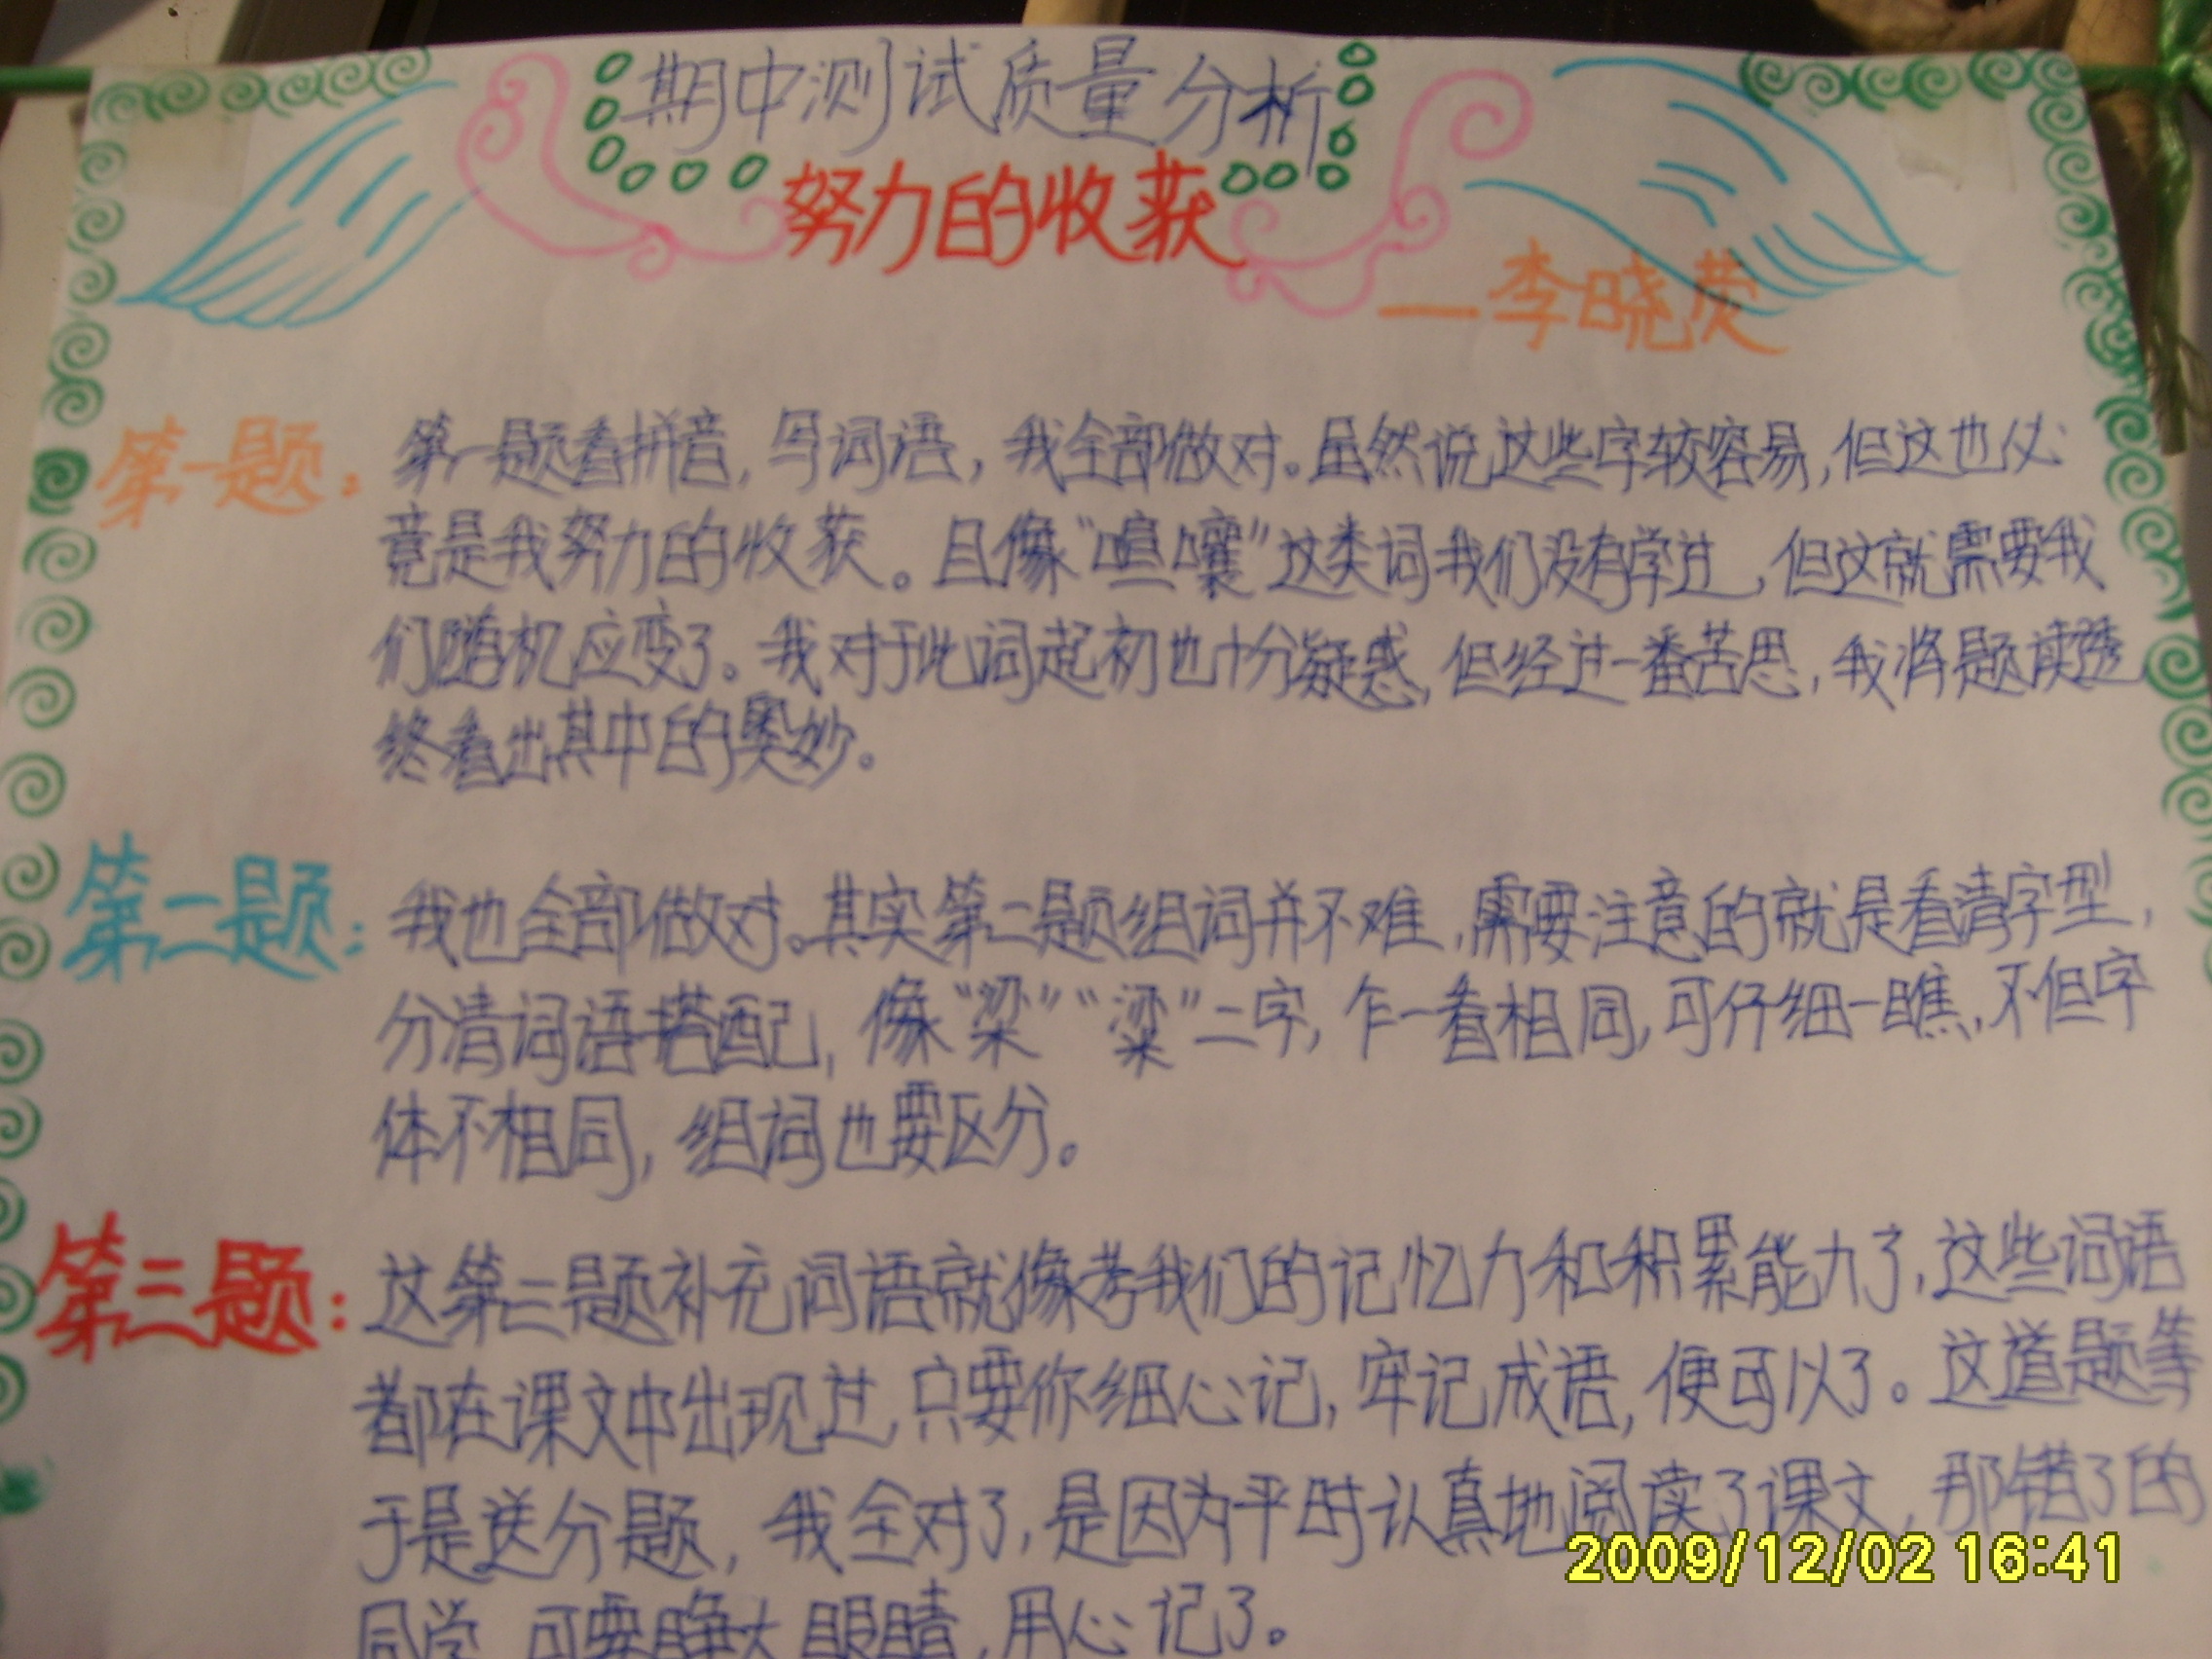 期中测试质量分析
努力的收获
—李晓荧
第一题：第一题看拼音，写词语，我全部做对。虽然说这些字较容易，但这也必
竟是我努力的收获。且像“喧嚷”这类词我们没有学过，但这就需要我
们随机应变了。我对于此词起初也十分疑惑，但经过一番苦思，我将题读透
终看出其中的奥妙。
第二题：我也全部做对。其实第二题组词并不难，需要注意的就是看清字型，
分清词语搭配，像“梁”“粱”二字，乍一看相同，可仔细一瞧，不但字
体不相同，组词也要区分。
第三题：这第三题补充词语就像考我们的记忆力和积累能力了，这些词语
都在课文中出现过，只要你细心记，牢记成语，便可以了。这道题等
于是送分题，我全对了，是因为平时认真地阅读了课文，那错了的
同学，可要睁大眼睛，用心记了。
2009/12/02 16:41